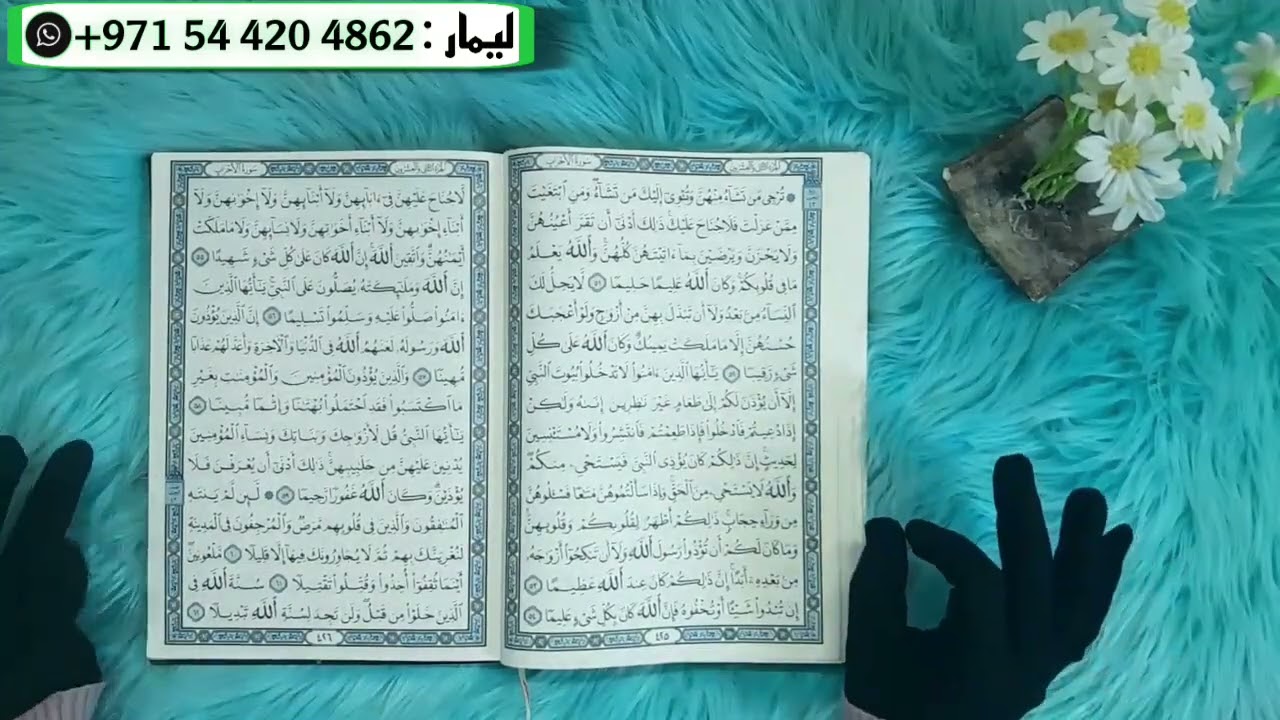 ليمار : +971 54 420 4862
الجزء الثاني والعشرون سورة الأحزاب
۞ تُرْجِى مَن تَشَآءُ مِنْهُنَّ وَتُـْٔوِىٓ إِلَيْكَ مَن تَشَآءُ ۖ وَمَنِ ٱبْتَغَيْتَ
مِمَّنْ عَزَلْتَ فَلَا جُنَاحَ عَلَيْكَ ۚ ذَٰلِكَ أَدْنَىٰٓ أَن تَقَرَّ أَعْيُنُهُنَّ
وَلَا يَحْزَنَّ وَيَرْضَيْنَ بِمَآ ءَاتَيْتَهُنَّ كُلُّهُنَّ ۚ وَٱللَّهُ يَعْلَمُ
مَا فِى قُلُوبِكُمْ ۚ وَكَانَ ٱللَّهُ عَلِيمًا حَلِيمًا ٥١ لَّا يَحِلُّ لَكَ
ٱلنِّسَآءُ مِنۢ بَعْدُ وَلَآ أَن تَبَدَّلَ بِهِنَّ مِنْ أَزْوَٰجٍ وَلَوْ أَعْجَبَكَ
حُسْنُهُنَّ إِلَّا مَا مَلَكَتْ يَمِينُكَ ۗ وَكَانَ ٱللَّهُ عَلَىٰ كُلِّ
شَىْءٍ رَّقِيبًا ٥٢ يَٰٓأَيُّهَا ٱلَّذِينَ ءَامَنُوا۟ لَا تَدْخُلُوا۟ بُيُوتَ ٱلنَّبِىِّ
إِلَّآ أَن يُؤْذَنَ لَكُمْ إِلَىٰ طَعَامٍ غَيْرَ نَٰظِرِينَ إِنَىٰهُ وَلَٰكِنْ
إِذَا دُعِيتُمْ فَٱدْخُلُوا۟ فَإِذَا طَعِمْتُمْ فَٱنتَشِرُوا۟ وَلَا مُسْتَـْٔنِسِينَ
لِحَدِيثٍ ۚ إِنَّ ذَٰلِكُمْ كَانَ يُؤْذِى ٱلنَّبِىَّ فَيَسْتَحْىِۦ مِنكُمْ ۖ
وَٱللَّهُ لَا يَسْتَحْىِۦ مِنَ ٱلْحَقِّ ۚ وَإِذَا سَأَلْتُمُوهُنَّ مَتَٰعًا فَسْـَٔلُوهُنَّ
مِن وَرَآءِ حِجَابٍ ۚ ذَٰلِكُمْ أَطْهَرُ لِقُلُوبِكُمْ وَقُلُوبِهِنَّ ۚ
وَمَا كَانَ لَكُمْ أَن تُؤْذُوا۟ رَسُولَ ٱللَّهِ وَلَآ أَن تَنكِحُوٓا۟ أَزْوَٰجَهُۥ
مِنۢ بَعْدِهِۦٓ أَبَدًا ۚ إِنَّ ذَٰلِكُمْ كَانَ عِندَ ٱللَّهِ عَظِيمًا ٥٣
إِن تُبْدُوا۟ شَيْـًٔا أَوْ تُخْفُوهُ فَإِنَّ ٱللَّهَ كَانَ بِكُلِّ شَىْءٍ عَلِيمًا ٥٤
٤٢٥
الجزء الثاني والعشرون سورة الأحزاب
لَّا جُنَاحَ عَلَيْهِنَّ فِىٓ ءَابَآئِهِنَّ وَلَآ أَبْنَآئِهِنَّ وَلَآ إِخْوَٰنِهِنَّ وَلَآ
أَبْنَآءِ إِخْوَٰنِهِنَّ وَلَآ أَبْنَآءِ أَخَوَٰتِهِنَّ وَلَا نِسَآئِهِنَّ وَلَا مَا مَلَكَتْ
أَيْمَٰنُهُنَّ ۗ وَٱتَّقِينَ ٱللَّهَ ۚ إِنَّ ٱللَّهَ كَانَ عَلَىٰ كُلِّ شَىْءٍ شَهِيدًا ٥٥
إِنَّ ٱللَّهَ وَمَلَٰٓئِكَتَهُۥ يُصَلُّونَ عَلَى ٱلنَّبِىِّ ۚ يَٰٓأَيُّهَا ٱلَّذِينَ
ءَامَنُوا۟ صَلُّوا۟ عَلَيْهِ وَسَلِّمُوا۟ تَسْلِيمًا ٥٦ إِنَّ ٱلَّذِينَ يُؤْذُونَ
ٱللَّهَ وَرَسُولَهُۥ لَعَنَهُمُ ٱللَّهُ فِى ٱلدُّنْيَا وَٱلْءَاخِرَةِ وَأَعَدَّ لَهُمْ عَذَابًا
مُّهِينًا ٥٧ وَٱلَّذِينَ يُؤْذُونَ ٱلْمُؤْمِنِينَ وَٱلْمُؤْمِنَٰتِ بِغَيْرِ
مَا ٱكْتَسَبُوا۟ فَقَدِ ٱحْتَمَلُوا۟ بُهْتَٰنًا وَإِثْمًا مُّبِينًا ٥٨
يَٰٓأَيُّهَا ٱلنَّبِىُّ قُل لِّأَزْوَٰجِكَ وَبَنَاتِكَ وَنِسَآءِ ٱلْمُؤْمِنِينَ
يُدْنِينَ عَلَيْهِنَّ مِن جَلَٰبِيبِهِنَّ ۚ ذَٰلِكَ أَدْنَىٰٓ أَن يُعْرَفْنَ فَلَا
يُؤْذَيْنَ ۗ وَكَانَ ٱللَّهُ غَفُورًا رَّحِيمًا ٥٩ ۞ لَّئِن لَّمْ يَنتَهِ
ٱلْمُنَٰفِقُونَ وَٱلَّذِينَ فِى قُلُوبِهِم مَّرَضٌ وَٱلْمُرْجِفُونَ فِى ٱلْمَدِينَةِ
لَنُغْرِيَنَّكَ بِهِمْ ثُمَّ لَا يُجَاوِرُونَكَ فِيهَآ إِلَّا قَلِيلًا ٦٠ مَّلْعُونِينَ ۖ
أَيْنَمَا ثُقِفُوٓا۟ أُخِذُوا۟ وَقُتِّلُوا۟ تَقْتِيلًا ٦١ سُنَّةَ ٱللَّهِ فِى
ٱلَّذِينَ خَلَوْا۟ مِن قَبْلُ ۖ وَلَن تَجِدَ لِسُنَّةِ ٱللَّهِ تَبْدِيلًا ٦٢
٤٢٦